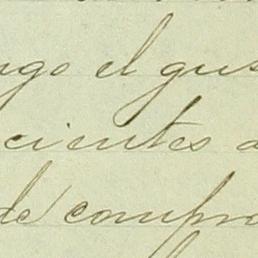 ngo el gus
cientes a
de compra